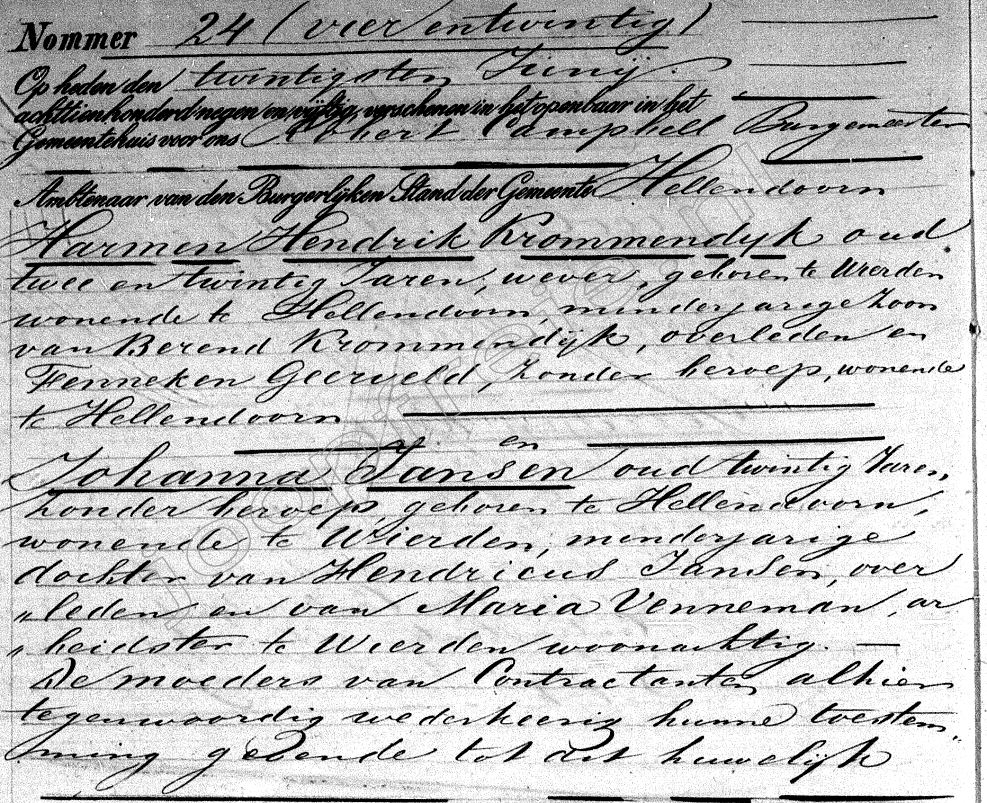 Nommer 24 (vier en twintig)
Op heden den twintigsten Junij
achttienhonderd negen en vijftig, verschenen in het openbaar in het
Gemeentehuis voor ons Robert Campbell Burgemeester
Ambtenaar van den Burgerlijken Stand der Gemeente Hellendoorn
Harmen Hendrik Krommendyk oud
twee en twintig Jaren, wever, geboren te Wierden
wonende te Hellendoorn, minderjarige Zoon
van Berend Krommendijk, overleden en
Fenneken Geerveld, Zonder beroep, wonende
te Hellendoorn
en
Johanna Jansen oud twintig Jaren,
Zonder beroep, geboren te Hellendoorn,
wonende te Wierden, minderjarige
dochter van Hendricus Jansen, over
„leden en van Maria Venneman, ar
„beidster te Wierden woonachtig. —
De moeders van Contractanten alhier
tegenwoordig wederkeerig hunne toestem„
ming gevende tot dit huwelijk